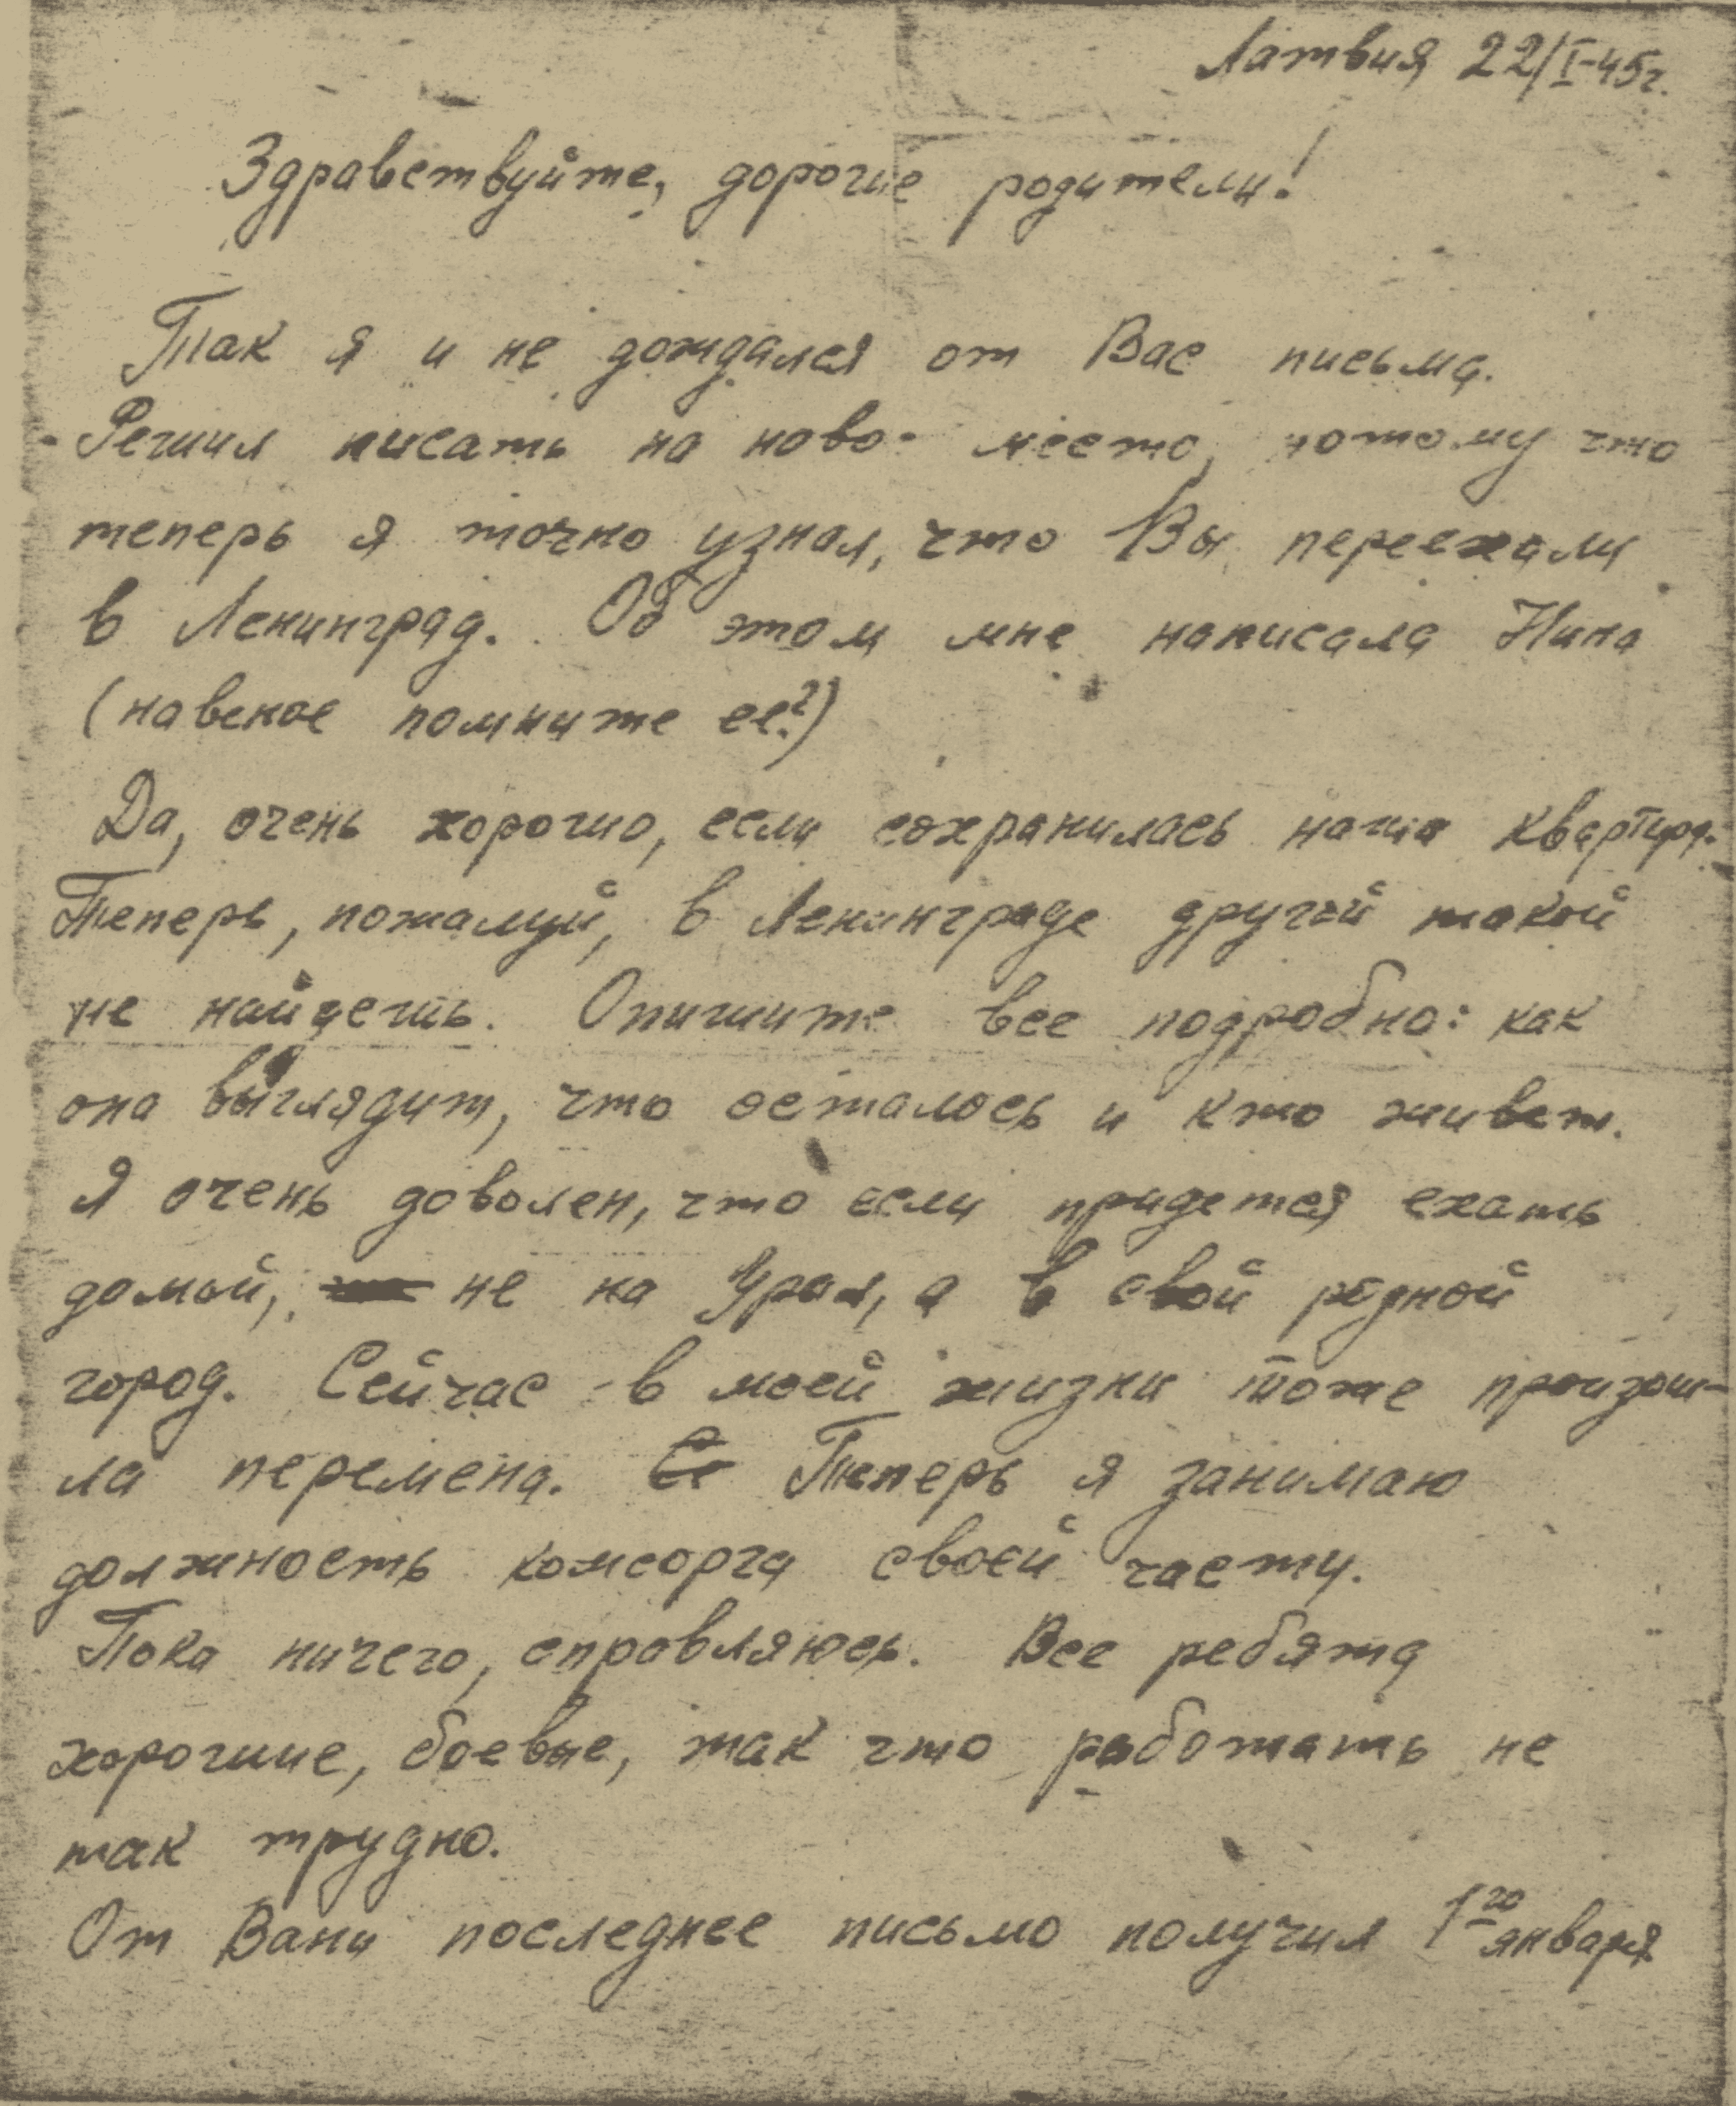 Латвия 22/I-45г.
Здравствуйте, дорогие родители!
Так я и не дождался от Вас письма.
Решил писать на ново- место, потому что
теперь я точно узнал, что Вы переехали
в Ленинград. Об этом мне написала Нина
(навеное помните ее?)
Да, очень хорошо, если сохранилась наша квартира.
Теперь, пожалуй, в Ленинграде другой такой
не найдешь. Опишите все подробно: как
она выглядит, что осталось и кто живет.
Я очень доволен, что если придется ехать
домой, не на Урал, а в свой родной
город. Сейчас в моей жизни тоже произош-
ла перемена. Се Теперь я занимаю
должность комсорга своей части.
Пока ничего, справляюсь. Все ребята
хорошие, боевые, так что работать не
так трудно.
От Вани последнее письмо получил 1го января